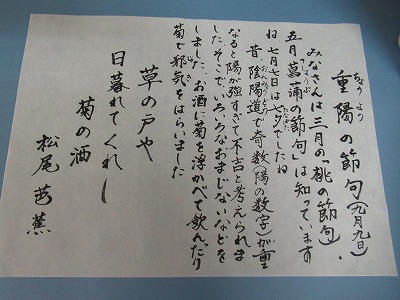 重陽の節句(九月九日)
みなさんは三月の「桃の節句」、
五月菖蒲の節句」は知っています
ね 七月七日は七夕でしたね
昔、陰陽道で奇数(陽の数字)が重
なると陽が強すぎて不吉と考えられま
した そこで、いろいろなおまじないなどを
しました。お酒に菊を浮かべて飲んだり
菊で邪気をはらいました
草の戸や
日暮れてくれし
菊の酒
松尾芭蕉